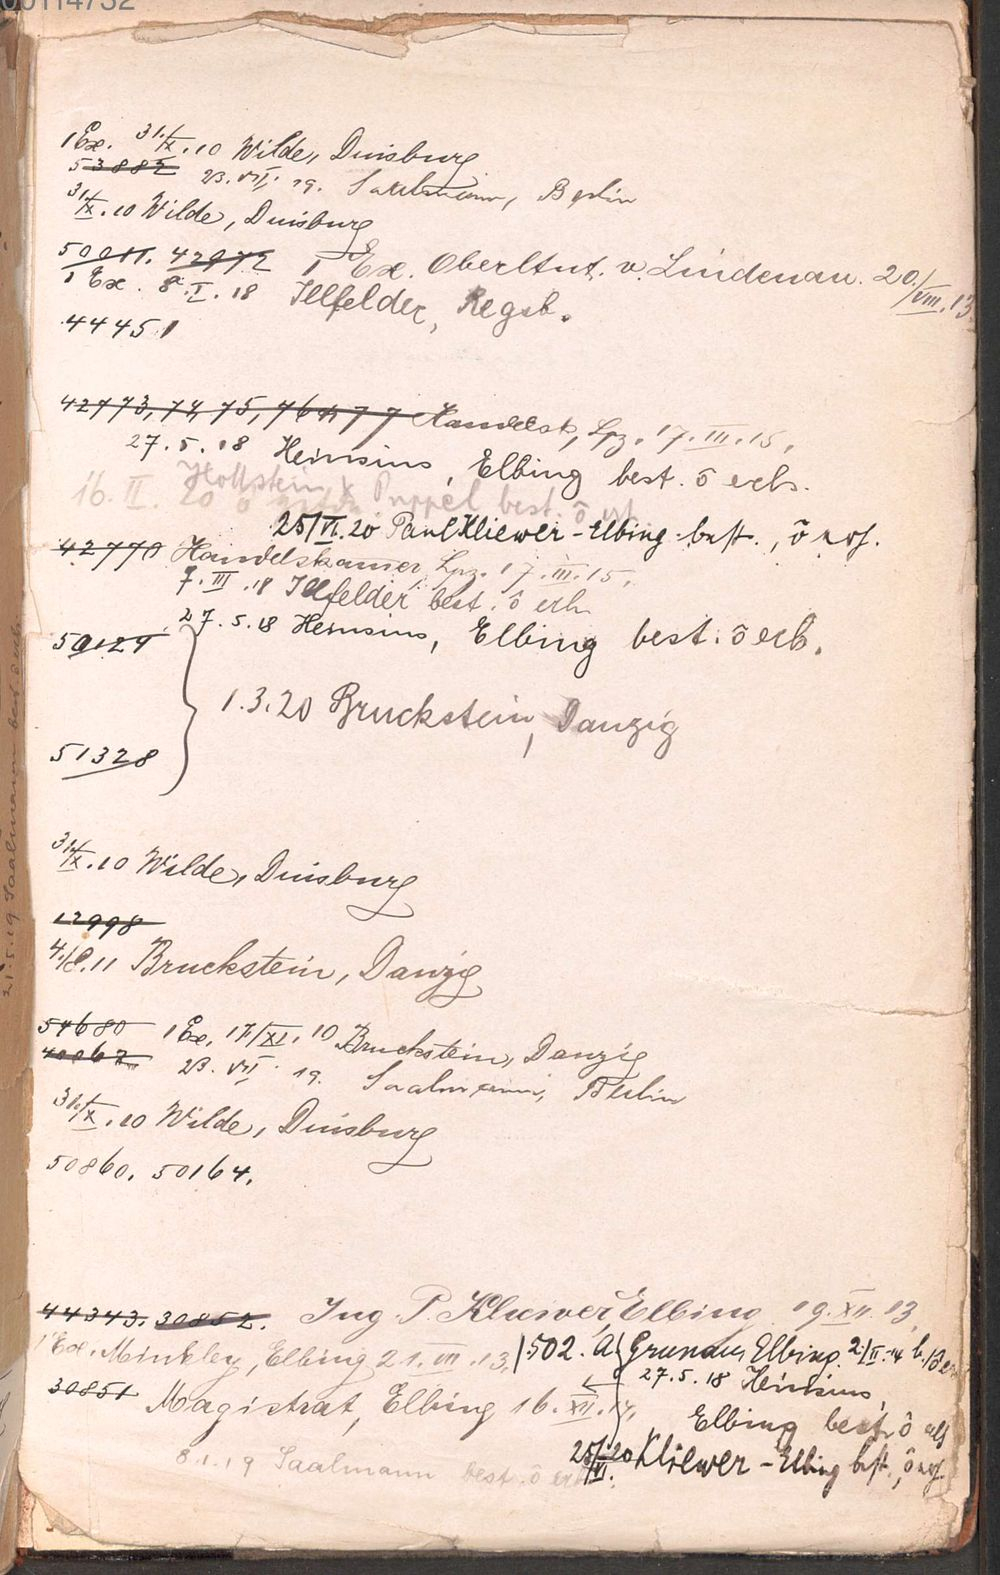 00114732
1 Ex. 31./IX.10 Wilde, Duisburg
53882 23.VII.19. Saalmann, Berlin
31./IX.10 Wilde, Duisburg
50011. 42972 1 Ex. Oberltnt. v. Lindenau. 20./VIII.13.
1 Ex. 8.I.18 Ilfelder, Regsb.
44451
42773, 74, 75, 76 77 Handelsk, Lpz. 17.III.15.
27.5.18 Heinsius, Elbing best. ō erh.
16.II.20 Puppel best. ō
25/VI.20 Paul Kliewer - Elbing best., ō erh.
42770 Handelskamer, Lpz. 17.III.15.
7.III.18 Ilfelder best. ō erh
27.5.18 Heinsius, Elbing best. ō erh.
50124
1.3.20 Bruckstein, Danzig
51328
31./IX.10 Wilde, Duisburg
12998
4./8.11 Bruckstein, Danzig
54680 1 Ex. 17/XI.10 Bruckstein, Danzig
40062 23.VII.19. Saalmann, Berlin
31./IX.10 Wilde, Duisburg
50860. 50164.
44343. 30852. Ing. P. Kliewer, Elbing 19.XII.13.
1 Ex. Minkley, Elbing 21.VII.13. 1502. A Grunau, Elbing. 2/II.14
27.5.18 Heinsius,
30851 Magistrat, Elbing 16.XII.14.
Elbing best. ō erh
25/VI.20 Kliewer - Elbing best., ō erh.
8.1.19 Saalmann best. ō erh.
21.5.19 Saalmann best. ō erh.